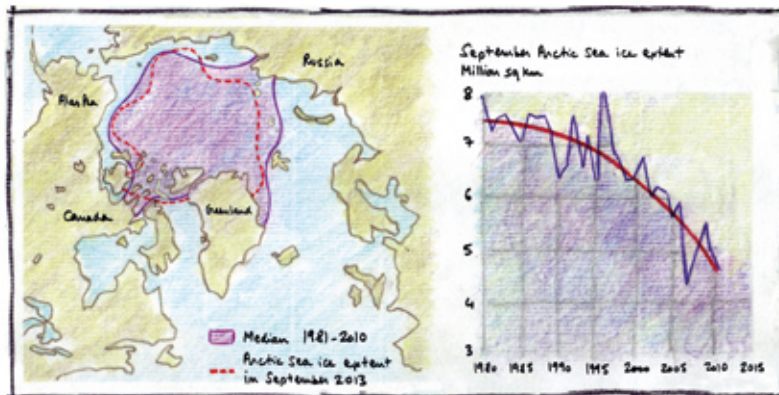 Russia
Alaska
Canada
Greenland
Median 1981-2010
Arctic sea ice extent
in September 2013
September Arctic sea ice extent
Million sq km
8
7
6
5
4
3
1980 1985 1990 1995 2000 2005 2010 2015